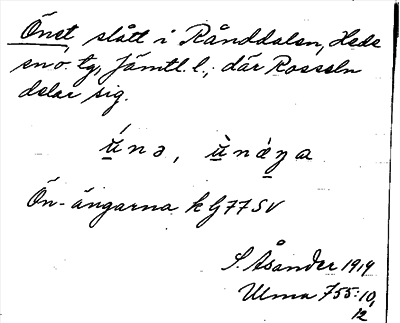 Önet, slått i Rånddalen, Hede
sn o. tg, Jämtl. l.; där Rosseln
delar sig.
Ön-ängarna k G77 SV
S. Åsander 1919
Ulma 755:10,
12